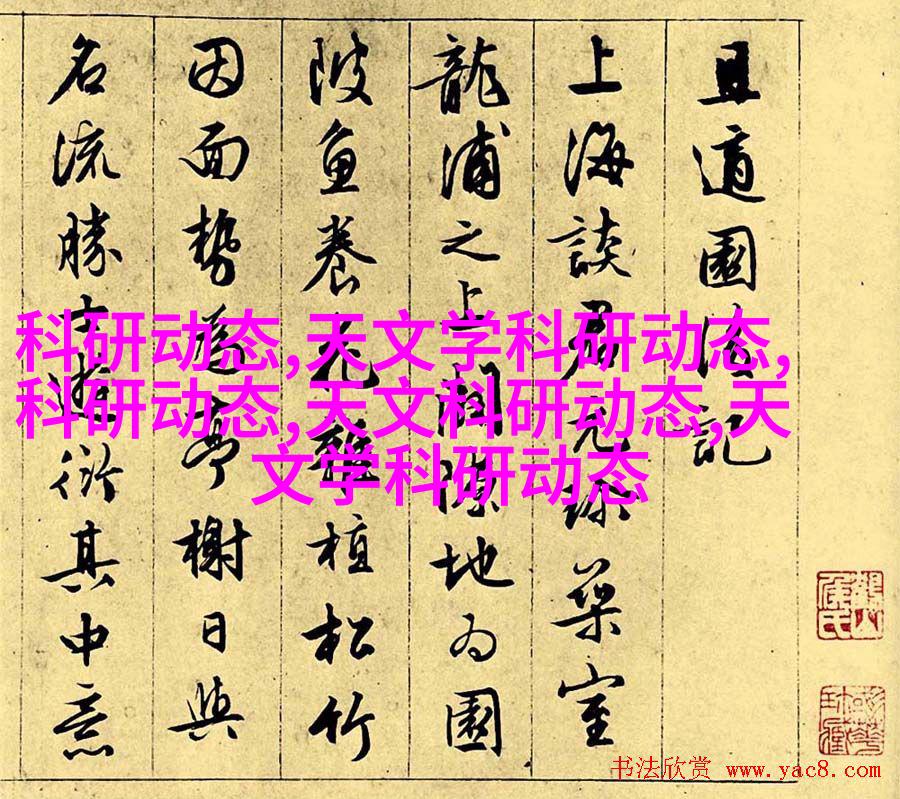 且適園後記
上海談君元築室
龍浦之上相隙地為園
陂魚養花雜植松竹
因面勢為亭榭日與
名流勝士遊衍其中意
科研动态,天文学科研动态,
科研动态,天文科研动态,天
文学科研动态
书法欣赏 www.yac8.com